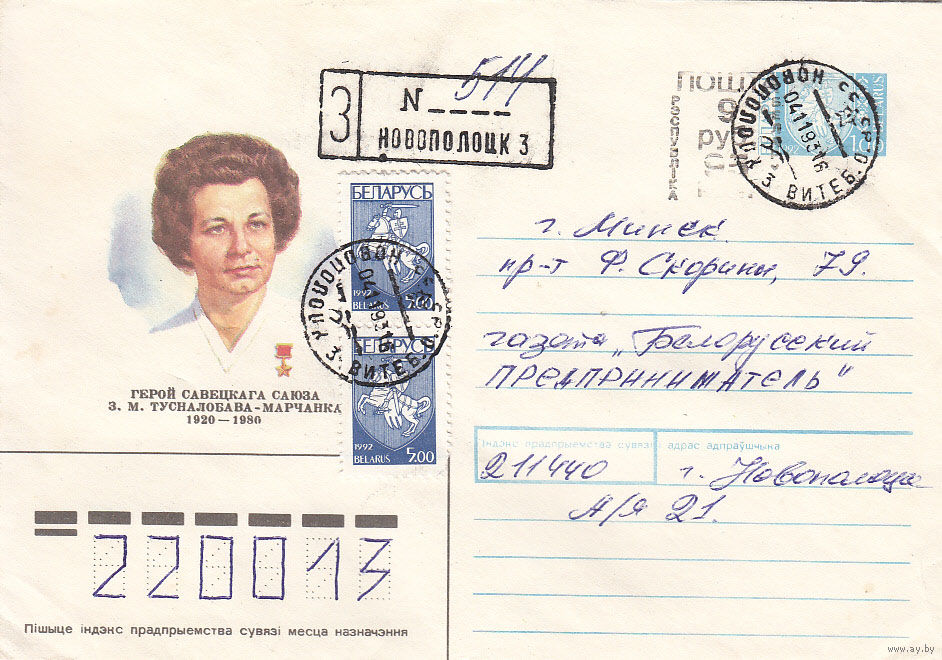 514
З
N ____
НОВОПОЛОЦК 3
ПОШТА
РЭСПУБЛІКА
1992
BELARUS
НОВОПОЛОЦК 3 ВИТЕБ.
04119316
БЕЛАРУСЬ
1992
BELARUS
5.00
НОВОПОЛОЦК 3 ВИТЕБ.
04119316
БЕЛАРУСЬ
1992
BELARUS
5.00
ГЕРОЙ САВЕЦКАГА САЮЗА
З. М. ТУСНАЛОБАВА-МАРЧАНКА
1920—1980
г. Минск
пр-т Ф. Скорины, 79.
газета „Белорусский
ПРЕДПРИНИМАТЕЛЬ"
Індэкс прадпрыемства сувязі
адрас адпраўшчыка
211440
г. Новополоцк
А/Я 21.
220013
Пішыце індэкс прадпрыемства сувязі месца назначэння
www.ay.by